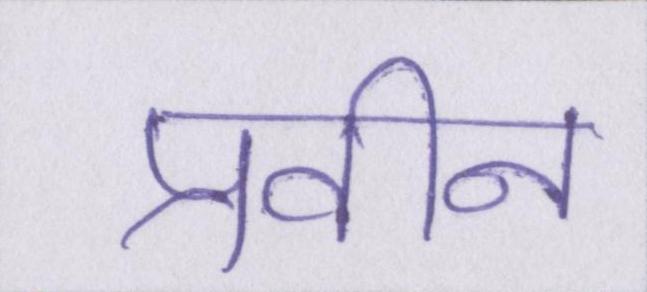 प्रवीन